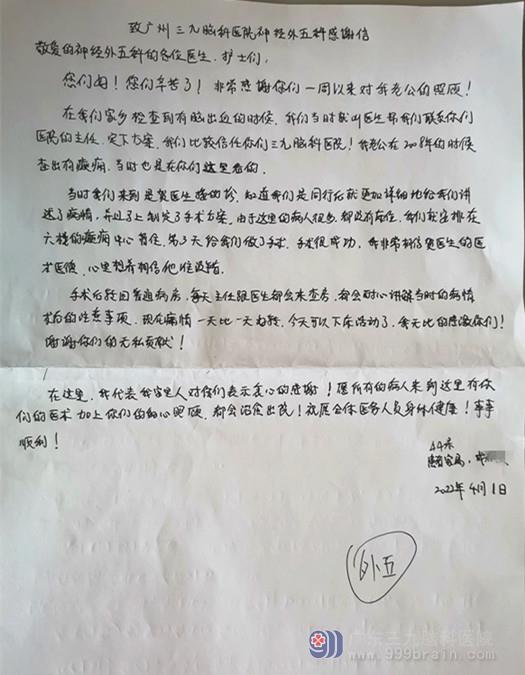 致广州三九脑科医院神经外五科感谢信
敬爱的神经外五科的各位医生、护士们,
您们好！您们辛苦了！非常感谢你们一周以来对我老公的照顾！
在我们家乡检查到有脑出血的时候,我们当时就叫医生帮我们联系你们
医院的主任,定下方案,我们比较信任你们三九脑科医院！我老公在2018年的时候
查出有癫痫,当时也是在你们这里看的.
当时我们来到是贺医生接的诊,知道我们是同行后就更加详细地给我们讲
述了病情,并马上制定了手术方案,由于这里的病人很多,都没有床位,我们就安排在
六楼的癫痫中心暂住,第3天给我们做了手术.手术很成功,我非常相信贺医生的医
术医德,心里想着相信他准没错.
手术后转回普通病房,每天主任跟医生都会来查房,都会耐心讲解当时的病情
术后的注意事项.现在病情一天比一天好转,今天可以下床活动了,我无比的感激你们！
谢谢你们的无私贡献！
在这里,我代表我家里人对你们表示衷心的感谢！愿所有的病人来到这里有你
们的医术加上你们的细心照顾,都会治愈出院！祝愿全体医务人员身体健康！事事
顺利！
44床
患者家属:
2022年4月1日
外五
广东三九脑科医院
www.999brain.com